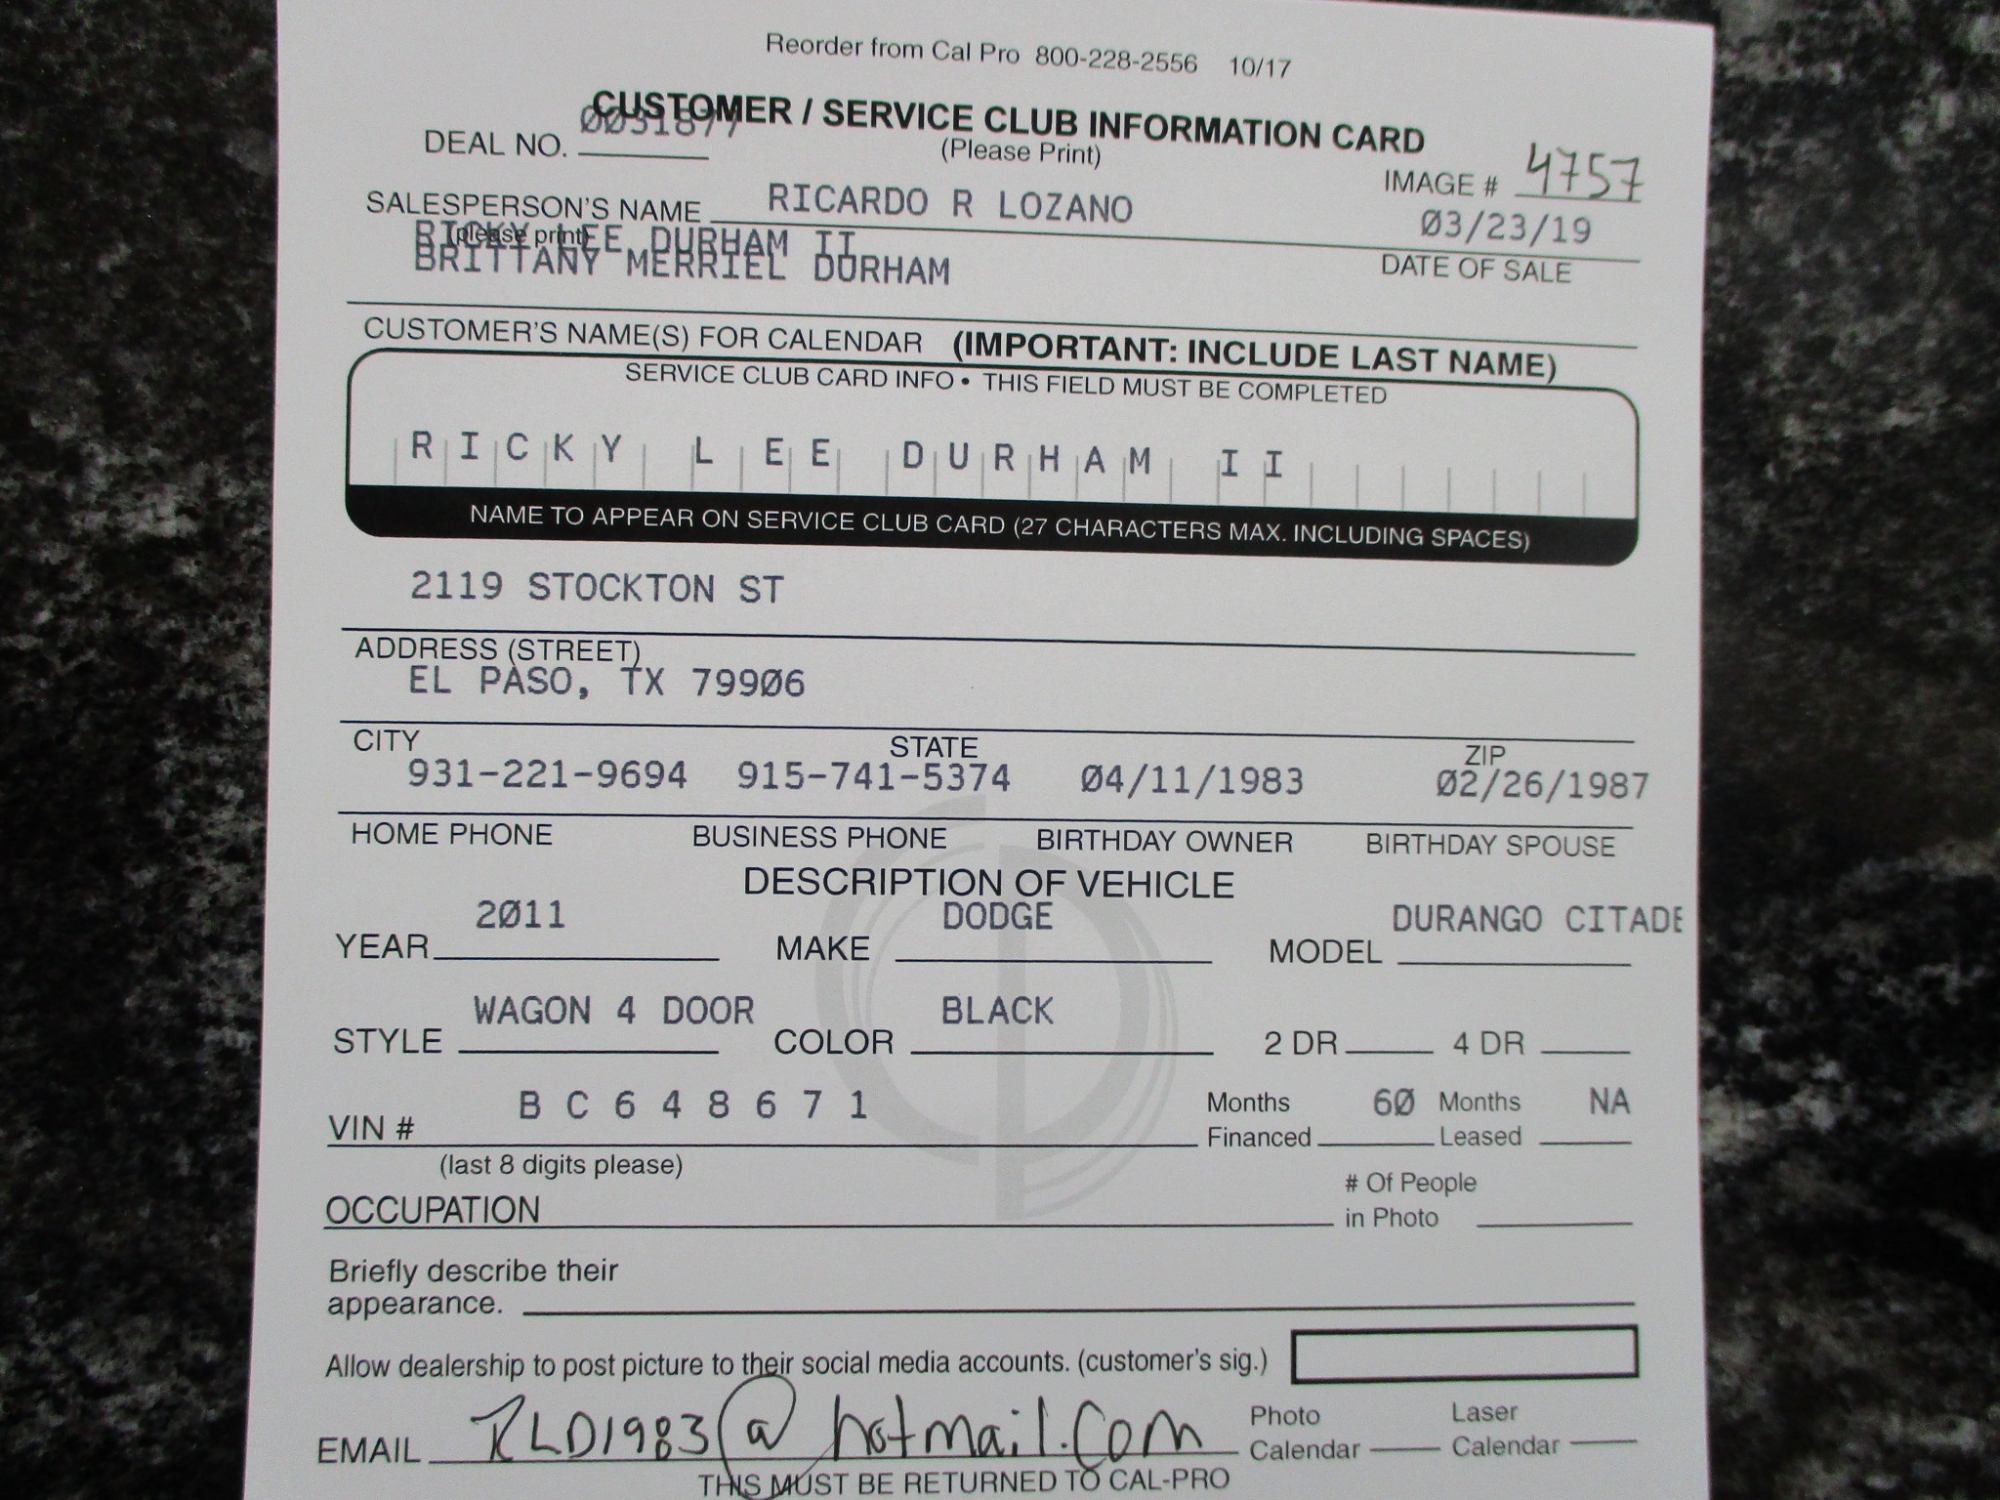 Reorder from Cal Pro 800-228-2556 10/17
CUSTOMER / SERVICE CLUB INFORMATION CARD
DEAL NO. 0031877
(Please Print)
IMAGE # 4757
SALESPERSON'S NAME RICARDO R LOZANO
(please print)
03/23/19
RICKY LEE DURHAM II
BRITTANY MERRIEL DURHAM
DATE OF SALE
CUSTOMER'S NAME(S) FOR CALENDAR (IMPORTANT: INCLUDE LAST NAME)
SERVICE CLUB CARD INFO • THIS FIELD MUST BE COMPLETED
RICKY LEE DURHAM II
NAME TO APPEAR ON SERVICE CLUB CARD (27 CHARACTERS MAX. INCLUDING SPACES)
2119 STOCKTON ST
ADDRESS (STREET)
EL PASO, TX 79906
CITY STATE ZIP
931-221-9694 915-741-5374 04/11/1983 02/26/1987
HOME PHONE BUSINESS PHONE BIRTHDAY OWNER BIRTHDAY SPOUSE
DESCRIPTION OF VEHICLE
YEAR 2011 MAKE DODGE MODEL DURANGO CITADE
STYLE WAGON 4 DOOR COLOR BLACK 2 DR 4 DR
VIN # B C 6 4 8 6 7 1 Months Financed 60 Months Leased NA
(last 8 digits please)
OCCUPATION # Of People in Photo
Briefly describe their
appearance.
Allow dealership to post picture to their social media accounts. (customer's sig.)
EMAIL RLD1983@hotmail.com Photo Calendar Laser Calendar
THIS MUST BE RETURNED TO CAL-PRO